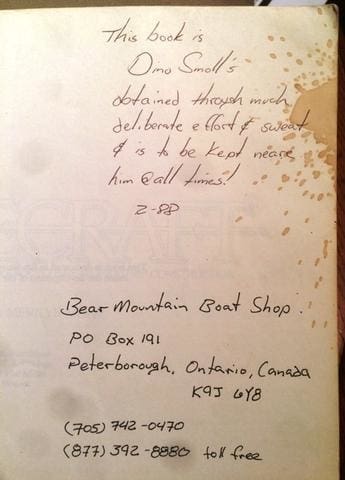 This book is
Dino Smoll's
obtained through much
deliberate effort & sweat
& is to be kept neare
him @ all times!
2-88
Bear Mountain Boat Shop.
PO Box 191
Peterborough, Ontario, Canada
K9J 6Y8
(705) 742-0470
(877) 392-8880 toll free